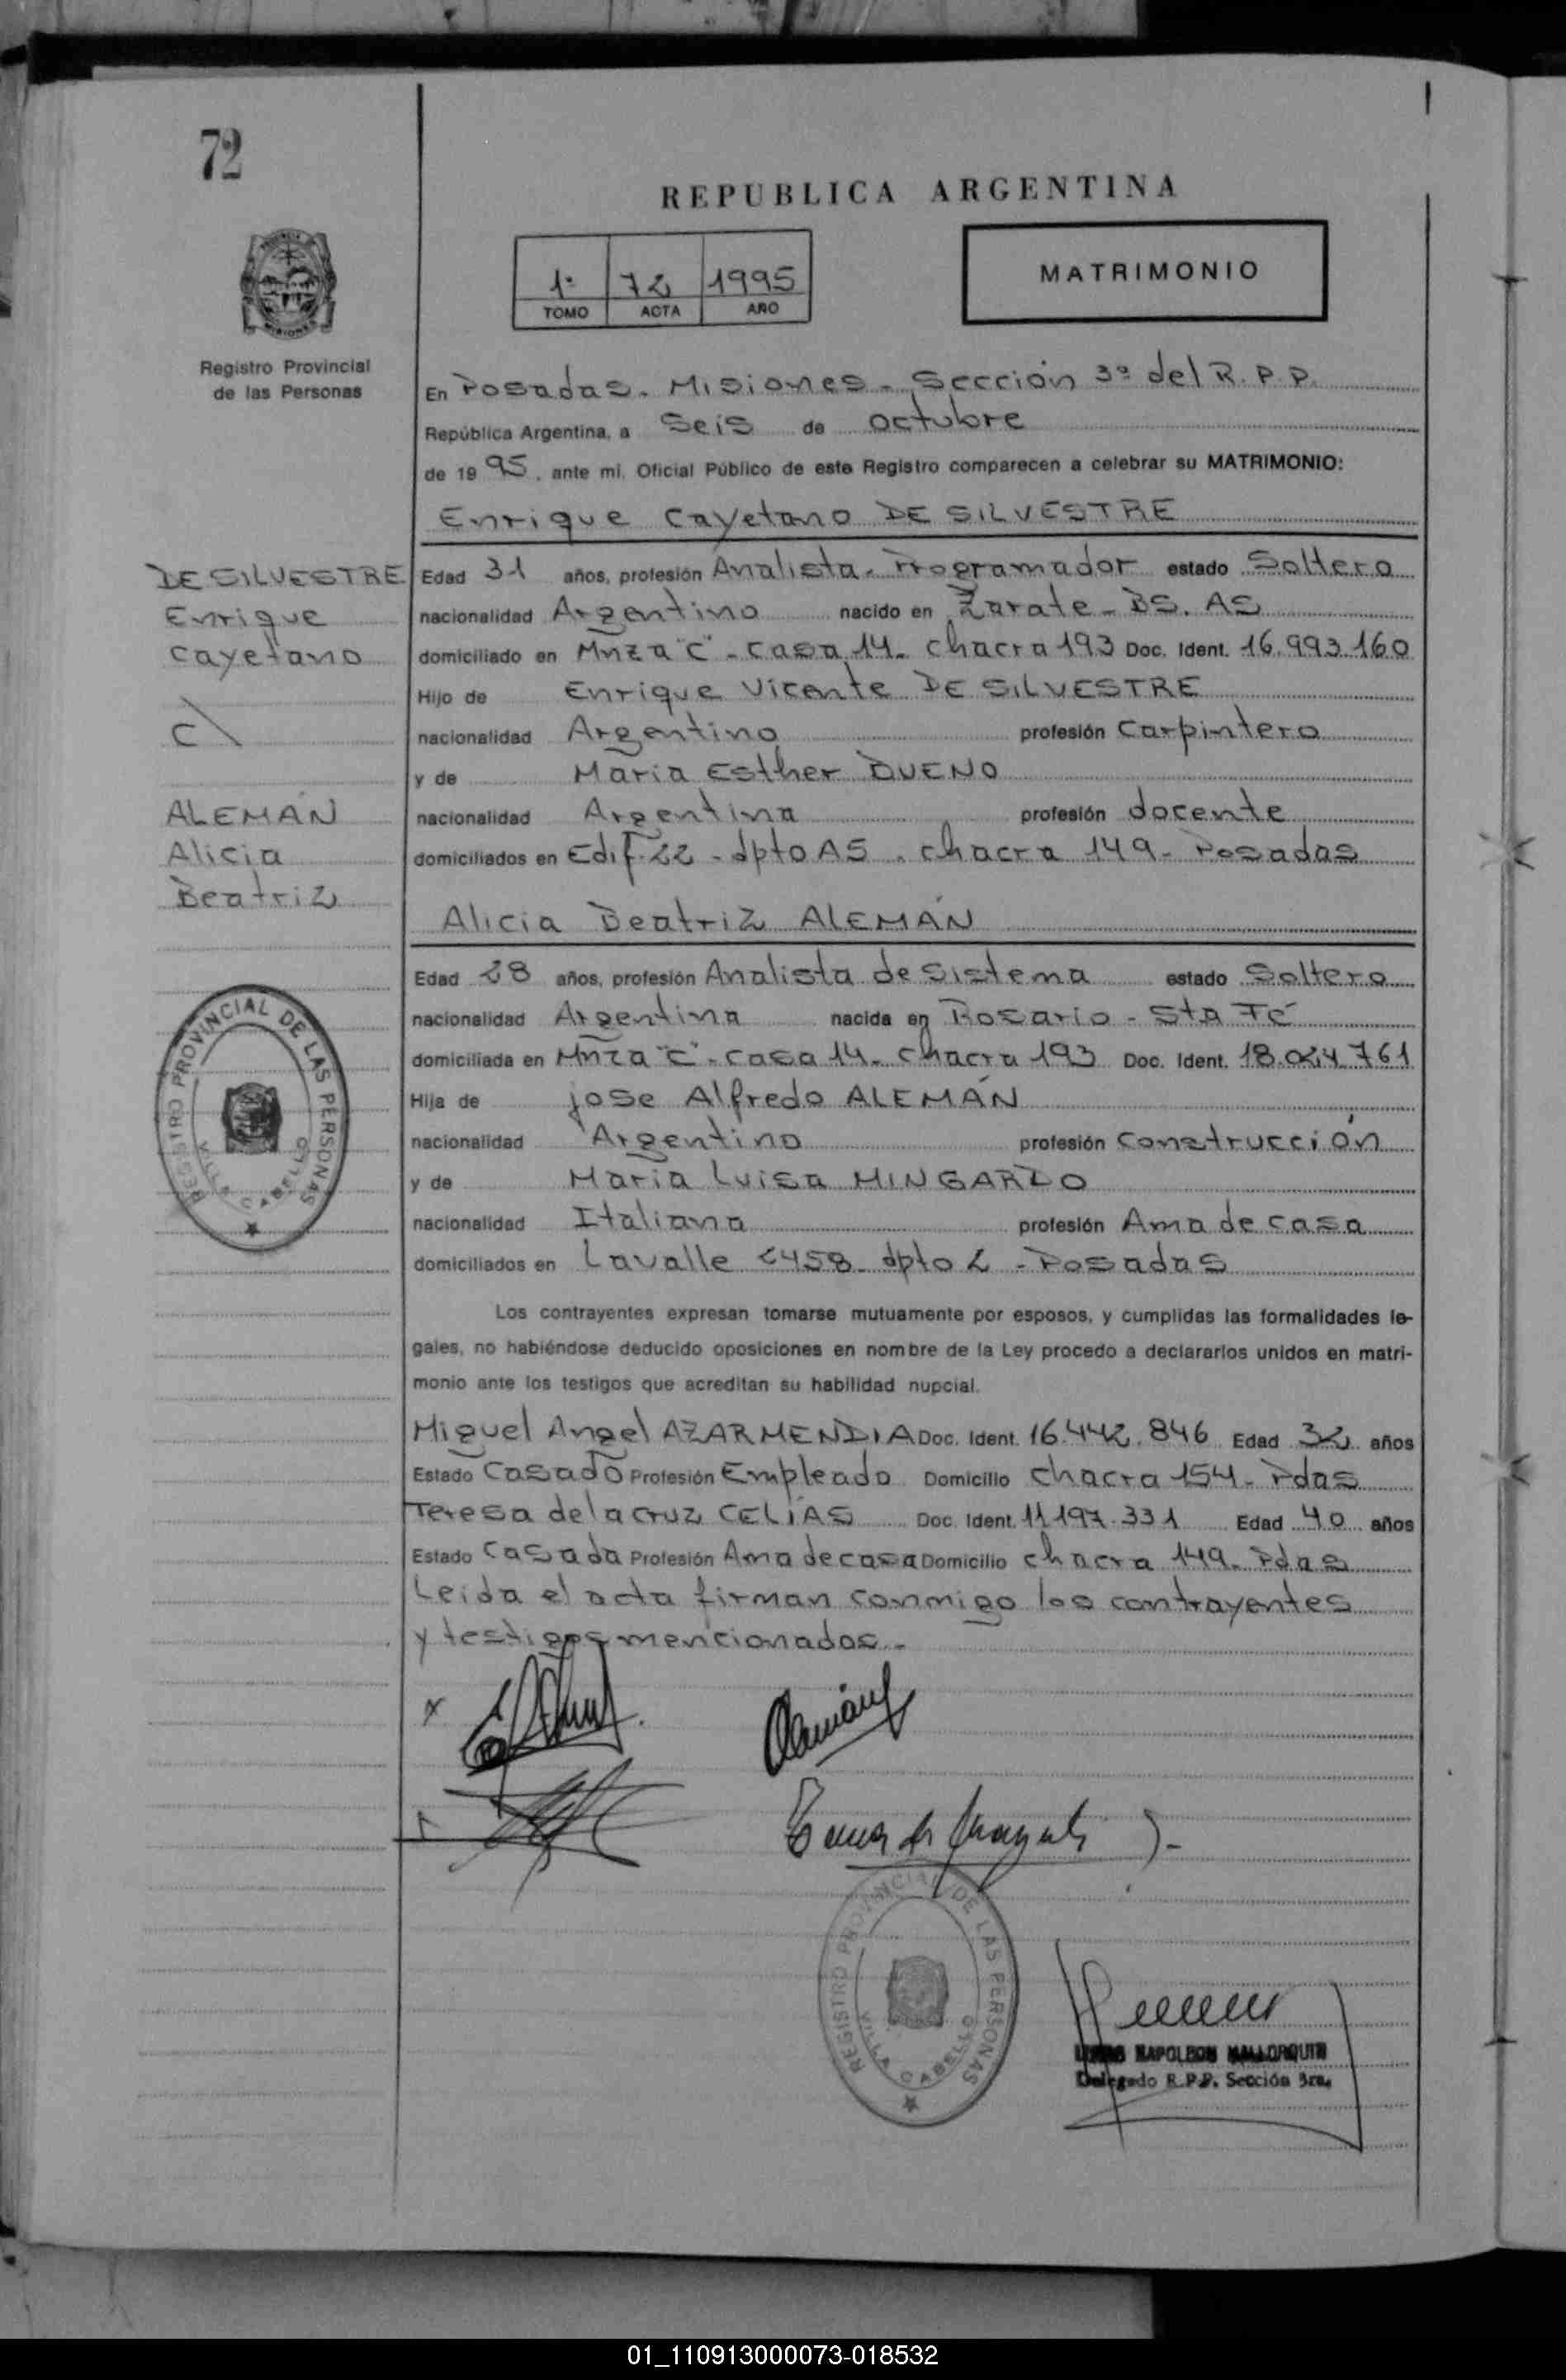 72
REPUBLICA ARGENTINA
1º 72 1995
TOMO ACTA AÑO
MATRIMONIO
Registro Provincial
de las Personas
En Posadas. Misiones - Sección 3ª del R.P.P.
República Argentina, a Seis de octubre
de 19 95, ante mi, Oficial Público de este Registro comparecen a celebrar su MATRIMONIO:
Enrique Cayetano DE SILVESTRE
DE SILVESTRE
Enrique
Cayetano
C\
ALEMÁN
Alicia
Beatriz
Edad 31 años, profesión Analista - Programador estado Soltero
nacionalidad Argentino nacido en Zarate - BS. AS
domiciliado en Mnza "C" - casa 14 - chacra 193 Doc. Ident. 16.993.160
Hijo de Enrique Vicente DE SILVESTRE
nacionalidad Argentino profesión Carpintero
y de Maria Esther BUENO
nacionalidad Argentina profesión docente
domiciliados en Edif. 22 - dpto A5 - chacra 149 - Posadas
Alicia Beatriz ALEMÁN
Edad 28 años, profesión Analista de Sistema estado Soltero
nacionalidad Argentina nacida en Rosario - Sta Fé
domiciliada en Mnza "C" - casa 14 - chacra 193 Doc. Ident. 18.024.761
Hija de jose Alfredo ALEMÁN
nacionalidad Argentino profesión Construcción
y de Maria Luisa MINGARDO
nacionalidad Italiana profesión Ama de casa
domiciliados en Lavalle 2458 - dpto 2 - Posadas
Los contrayentes expresan tomarse mutuamente por esposos, y cumplidas las formalidades le-
gales, no habiéndose deducido oposiciones en nombre de la Ley procedo a declararlos unidos en matri-
monio ante los testigos que acreditan su habilidad nupcial.
Miguel Angel AZARMENDIA Doc. Ident. 16.442.846 Edad 32 años
Estado Casado Profesión Empleado Domicilio chacra 154 - Pdas
Teresa de la cruz CELÍAS Doc. Ident. 11.197.331 Edad 40 años
Estado Casada Profesión Ama de casa Domicilio chacra 149 - Pdas
Leida el acta firman conmigo los contrayentes
y testigos mencionados.-
REGISTRO PROVINCIAL DE LAS PERSONAS
VILLA CABELLO
REGISTRO PROVINCIAL DE LAS PERSONAS
VILLA CABELLO
NAPOLEON MALLORQUIN
Delegado R.P.P. Sección 3ra.
01_110913000073-018532